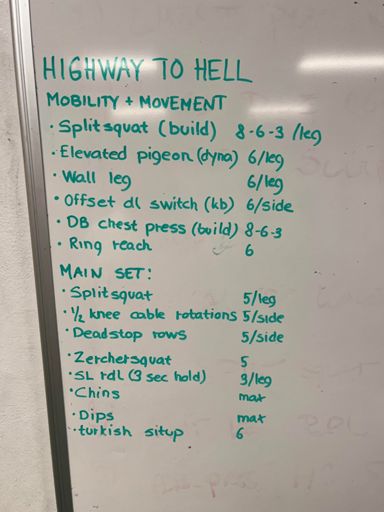 HIGHWAY TO HELL
MOBILITY + MOVEMENT
· Splitsquat (build) 8-6-3 /leg
· Elevated pigeon (dyna) 6/leg
· Wall leg 6/leg
· Offset dl switch (kb) 6/side
· DB chest press (build) 8-6-3
· Ring reach 6
MAIN SET:
· Splitsquat 5/leg
· ½ knee cable rotations 5/side
· Deadstop rows 5/side
· Zerchersquat 5
· SL rdl (3 sec hold) 3/leg
· Chins max
· Dips max
· turkish situp 6